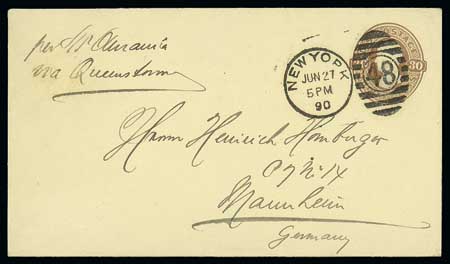 per SS Aurania
via Queenstown
POSTAGE
30
NEW YORK
JUN 27
5 PM
90
48
Herrn Heinrich Homburger
Mannheim
Germany